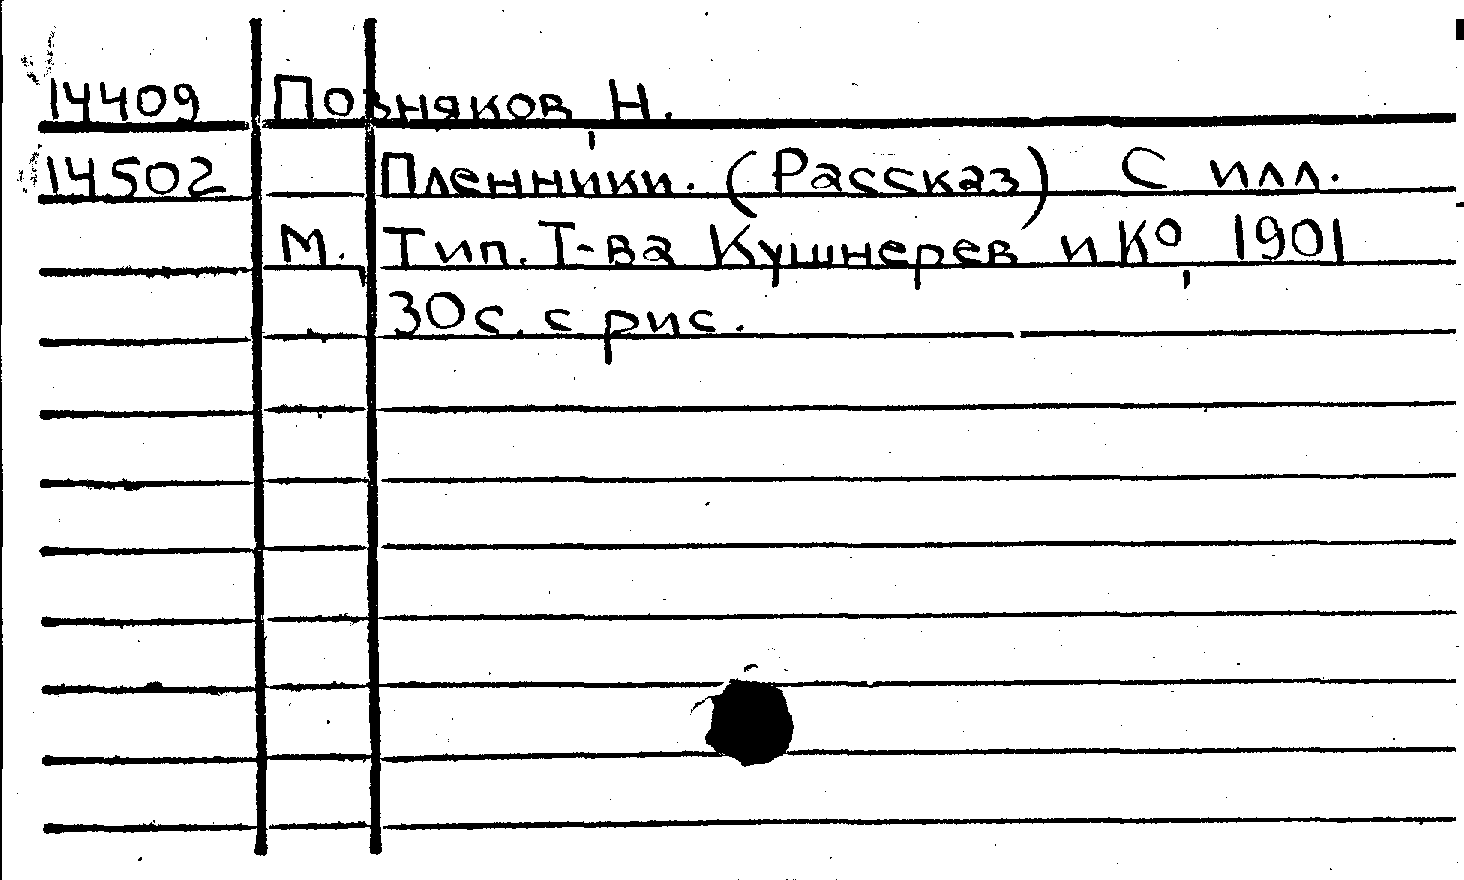 14409 Позняков, Н.
14502 Пленники. (Рассказ) С илл.
М., Тип. Т-ва Кушнерев и Ко, 1901
30 с. с рис.